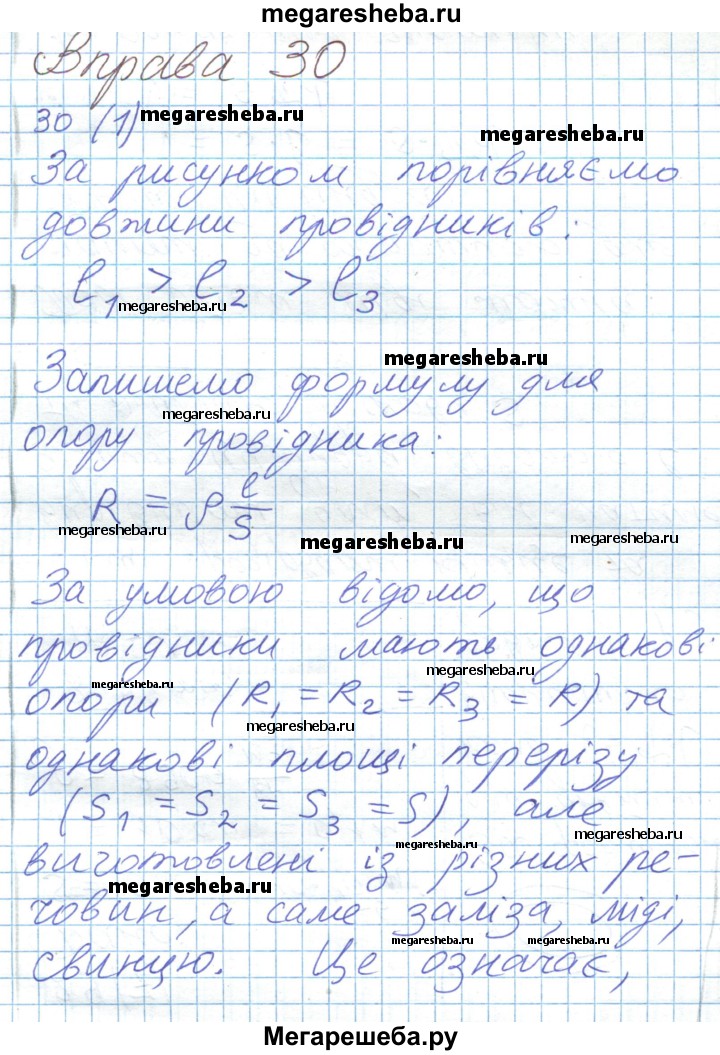 megaresheba.ru
Вправа 30
30 (1) megaresheba.ru
megaresheba.ru
За рисунком порівняємо
довжини провідників:
l₁ > l₂ > l₃
megaresheba.ru
megaresheba.ru
Запишемо формулу для
megaresheba.ru
опору провідника:
R = ρ l/S
megaresheba.ru
megaresheba.ru
megaresheba.ru
За умовою відомо, що
провідники мають однакові
megaresheba.ru
megaresheba.ru
опори (R₁ = R₂ = R₃ = R) та
megaresheba.ru
однакові площі перерізу
(S₁ = S₂ = S₃ = S), але
megaresheba.ru
megaresheba.ru
виготовлені із різних ре-
megaresheba.ru
човин, а саме заліза, міді,
megaresheba.ru
megaresheba.ru
свинцю. Це означає,
Мегарешеба.ру